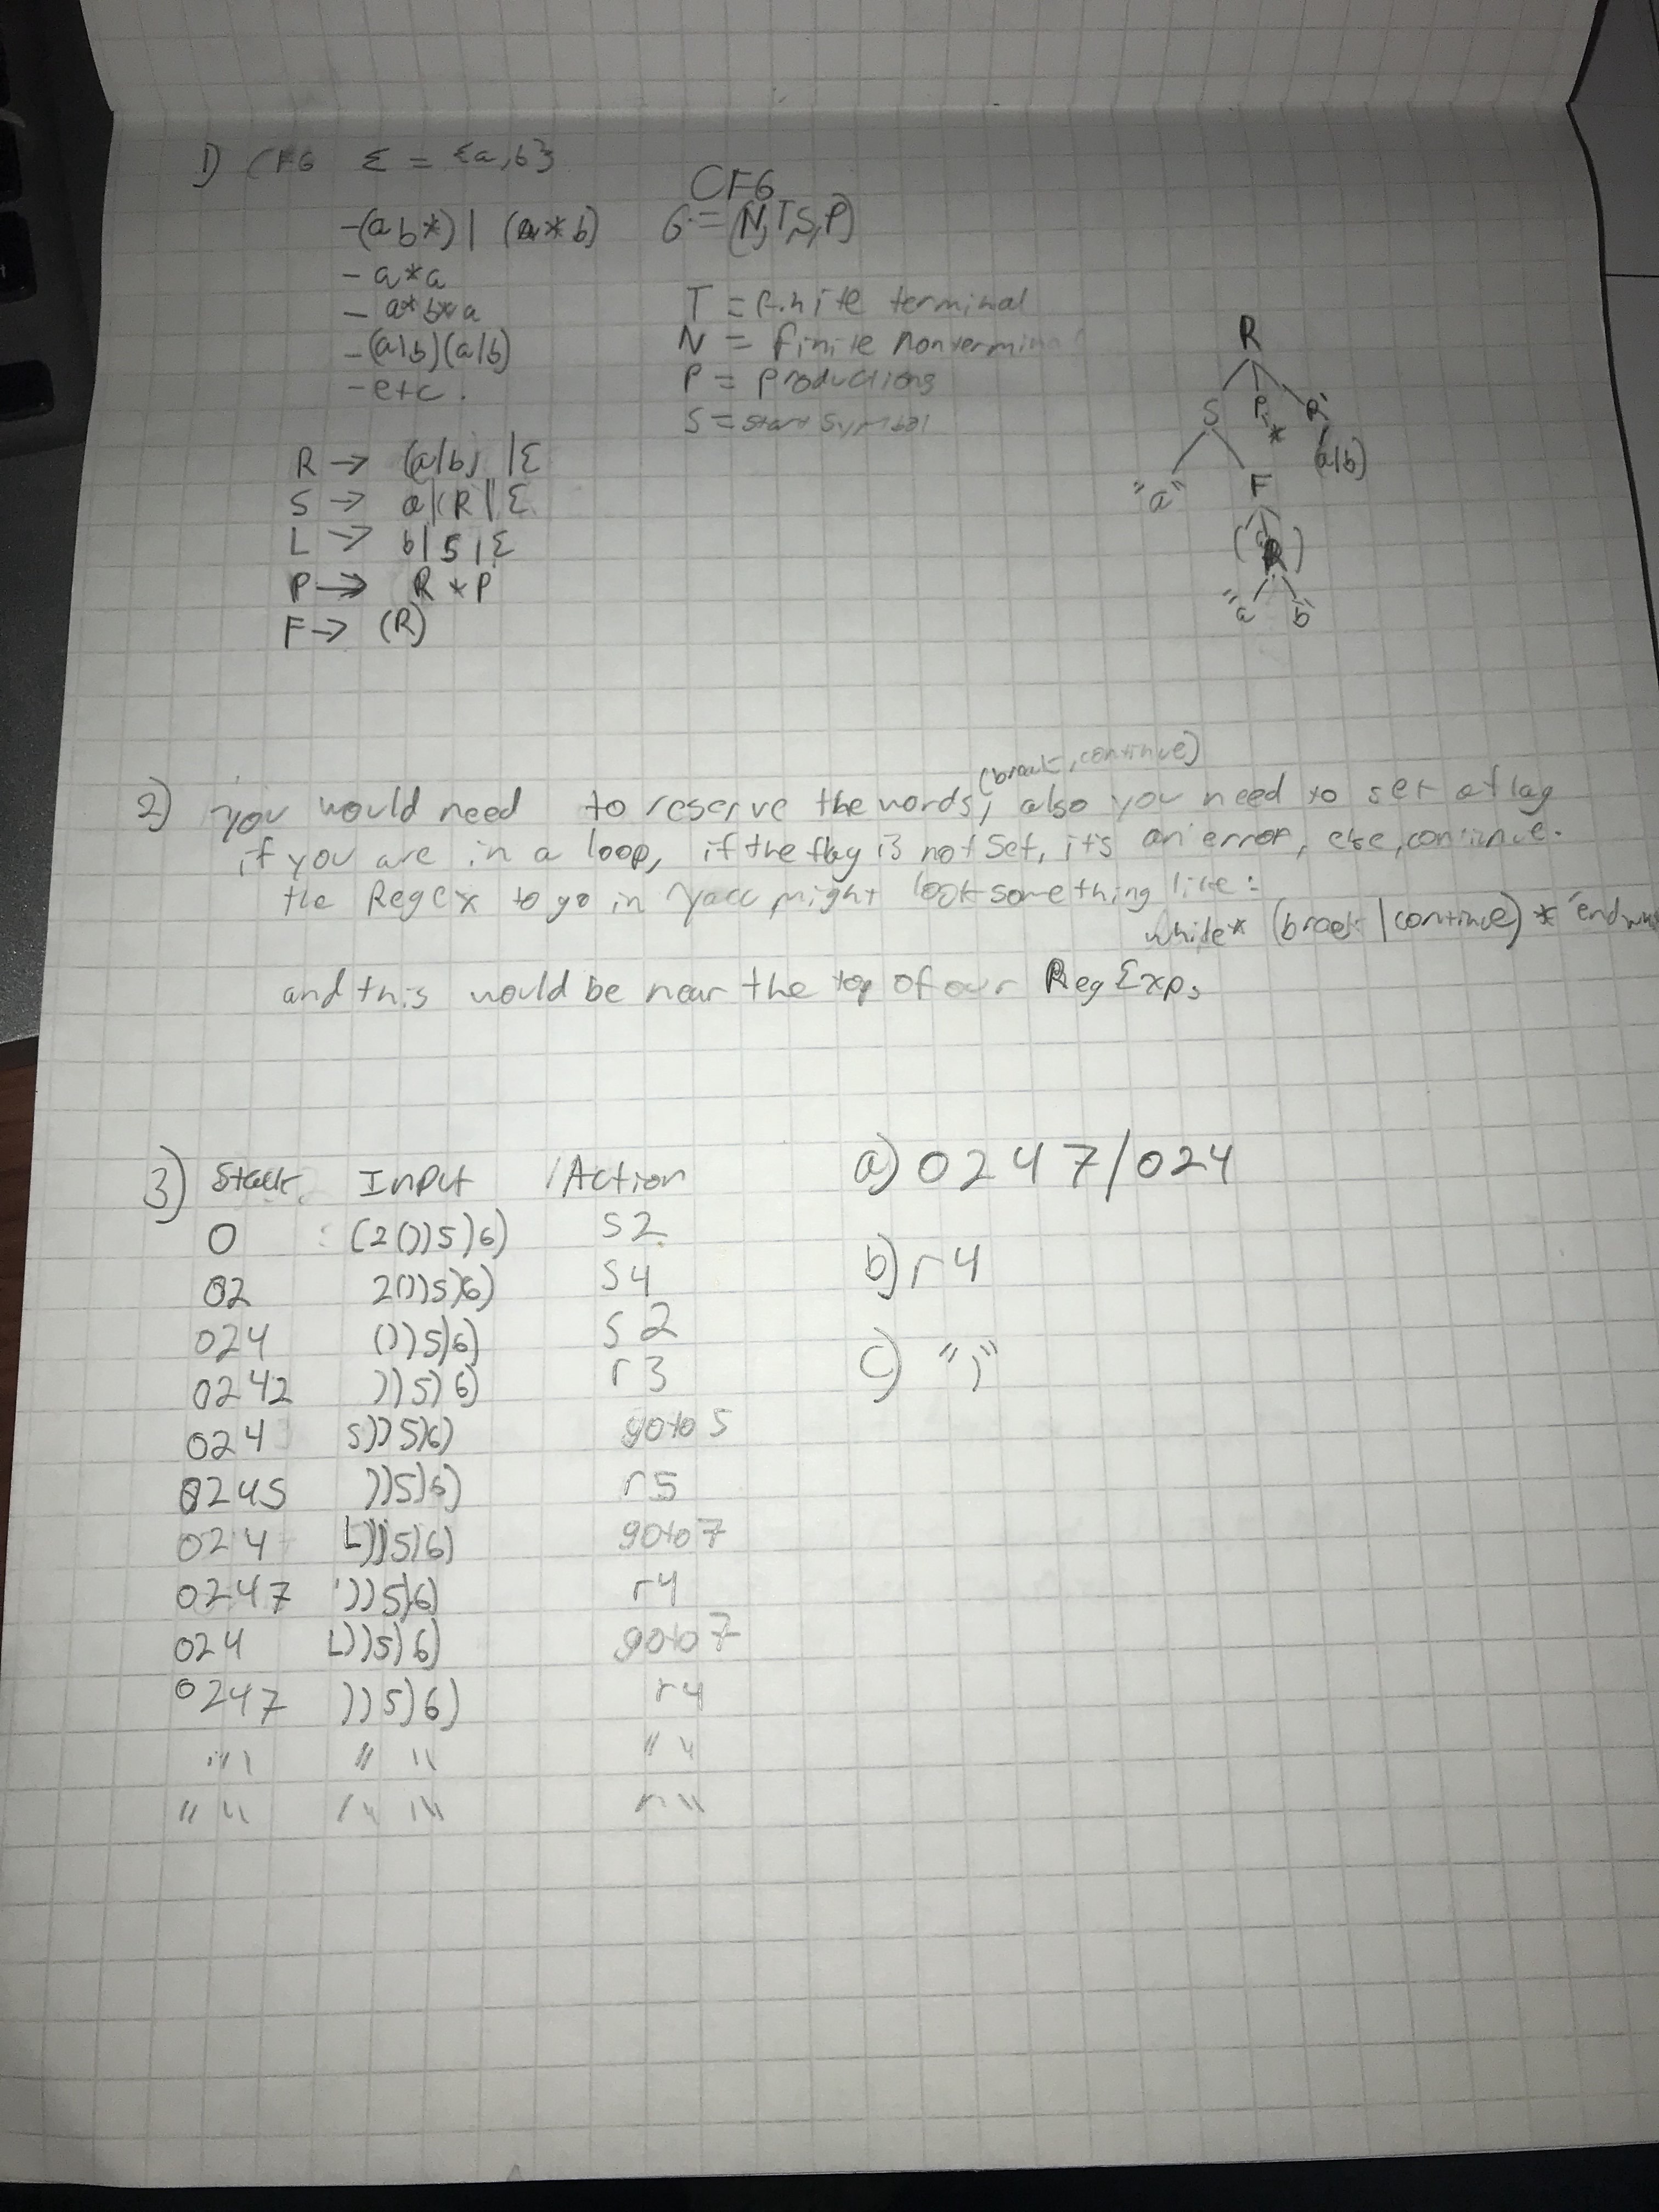 1) CFG Σ = {a,b}
-(ab*)| (a*b)
- a*a
- a*b*a
-(a|b)(a|b)
-etc.
CFG
G = (N,T,S,P)
T = finite terminal
N = finite nontermina
P = productions
S = start symbol
R → (a|b) |Σ
S → a|(R||Σ
L → b|S|Σ
P → R*P
F → (R)
R
S P R
* (a|b)
"a" F
( R )
"a b"
2) you would need to reserve the words, (break, continue) also you need to set a flag
if you are in a loop, if the flag is not set, it's an error, else, continue.
the RegEx to go in Yacc might look something like:
while* (break|continue)*
and this would be near the top of our RegExp.
3) Stack Input /Action
0 (2())5)6) s2
02 2())5)6) s4
024 ())5)6) s2
0242 ))5)6) r3
024 S))5)6) goto5
0245 ))5)6) r5
024 L))5)6) goto7
0247 ))5)6) r4
024 L))5)6) goto7
0247 ))5)6) r4
" " " " " "
" " " " " "
a) 0247/024
b) r4
c) ")"